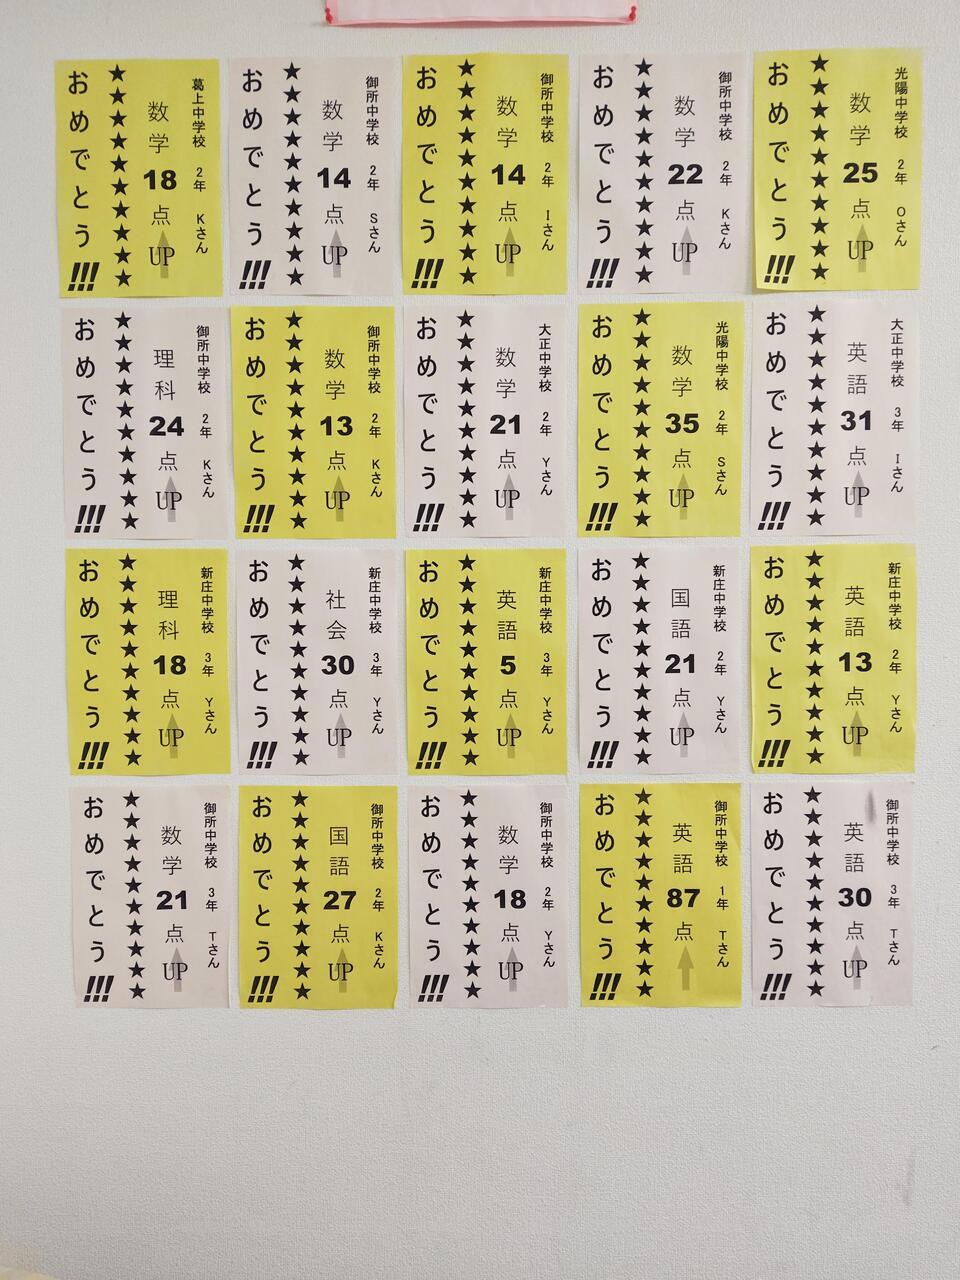 葛上中学校 2年 Kさん
数学18点UP
★★★★★★★★★★
おめでとう!!!
御所中学校 2年 Sさん
数学14点UP
★★★★★★★★★★
おめでとう!!!
御所中学校 2年 Iさん
数学14点UP
★★★★★★★★★★
おめでとう!!!
御所中学校 2年 Kさん
数学22点UP
★★★★★★★★★★
おめでとう!!!
光陽中学校 2年 Oさん
数学25点UP
★★★★★★★★★★
おめでとう!!!
御所中学校 2年 Kさん
理科24点UP
★★★★★★★★★★
おめでとう!!!
御所中学校 2年 Kさん
数学13点UP
★★★★★★★★★★
おめでとう!!!
大正中学校 2年 Yさん
数学21点UP
★★★★★★★★★★
おめでとう!!!
光陽中学校 2年 Sさん
数学35点UP
★★★★★★★★★★
おめでとう!!!
大正中学校 3年 Iさん
英語31点UP
★★★★★★★★★★
おめでとう!!!
新庄中学校 3年 Yさん
理科18点UP
★★★★★★★★★★
おめでとう!!!
新庄中学校 3年 Yさん
社会30点UP
★★★★★★★★★★
おめでとう!!!
新庄中学校 3年 Yさん
英語5点UP
★★★★★★★★★★
おめでとう!!!
新庄中学校 2年 Yさん
国語21点UP
★★★★★★★★★★
おめでとう!!!
新庄中学校 2年 Yさん
英語13点UP
★★★★★★★★★★
おめでとう!!!
御所中学校 3年 Tさん
数学21点UP
★★★★★★★★★★
おめでとう!!!
御所中学校 2年 Kさん
国語27点UP
★★★★★★★★★★
おめでとう!!!
御所中学校 2年 Yさん
数学18点UP
★★★★★★★★★★
おめでとう!!!
御所中学校 1年 Tさん
英語87点
★★★★★★★★★★
おめでとう!!!
御所中学校 3年 Tさん
英語30点UP
★★★★★★★★★★
おめでとう!!!